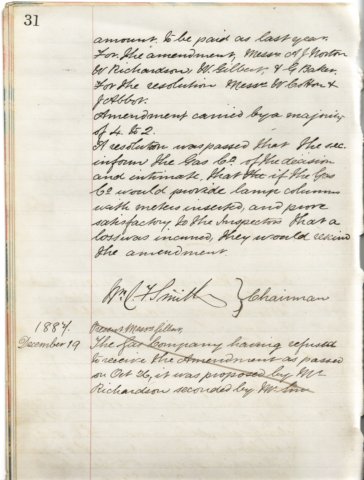 31
amount to be paid as last year.
For the amendment, Messrs A J Norton
W Richardson, W. Gilbert, & G Baker.
For the resolution Messrs W Cotton &
J Abbot.
Amendment carried by a majority
of 4 to 2.
A resolution was passed that the sec.
inform the Gas Co. of the decision
and intimate that the if the Gas
Co would provide lamp columns
with meters inserted, and prove
satisfactory to the Inspectors that a
loss was incurred, they would rescind
the amendment.
Wm C F Smith } Chairman
1884. Present Messrs
December 19 The Gas Company having refused
to receive the Amendment as passed
on Oct 26, it was proposed by Mr
Richardson seconded by Mr